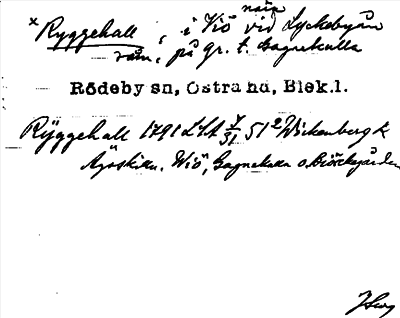 nära
× Ryggehall, i Viö vid Lyckebyån
råm., på gr. t. Gagnekulla
Rödeby sn, Östra hd, Blek.l.
Rÿggehall 1791 LSA 51² Wickenberg k
Ägoskiln. Wiö, Gagnekulla o. Biörkegården